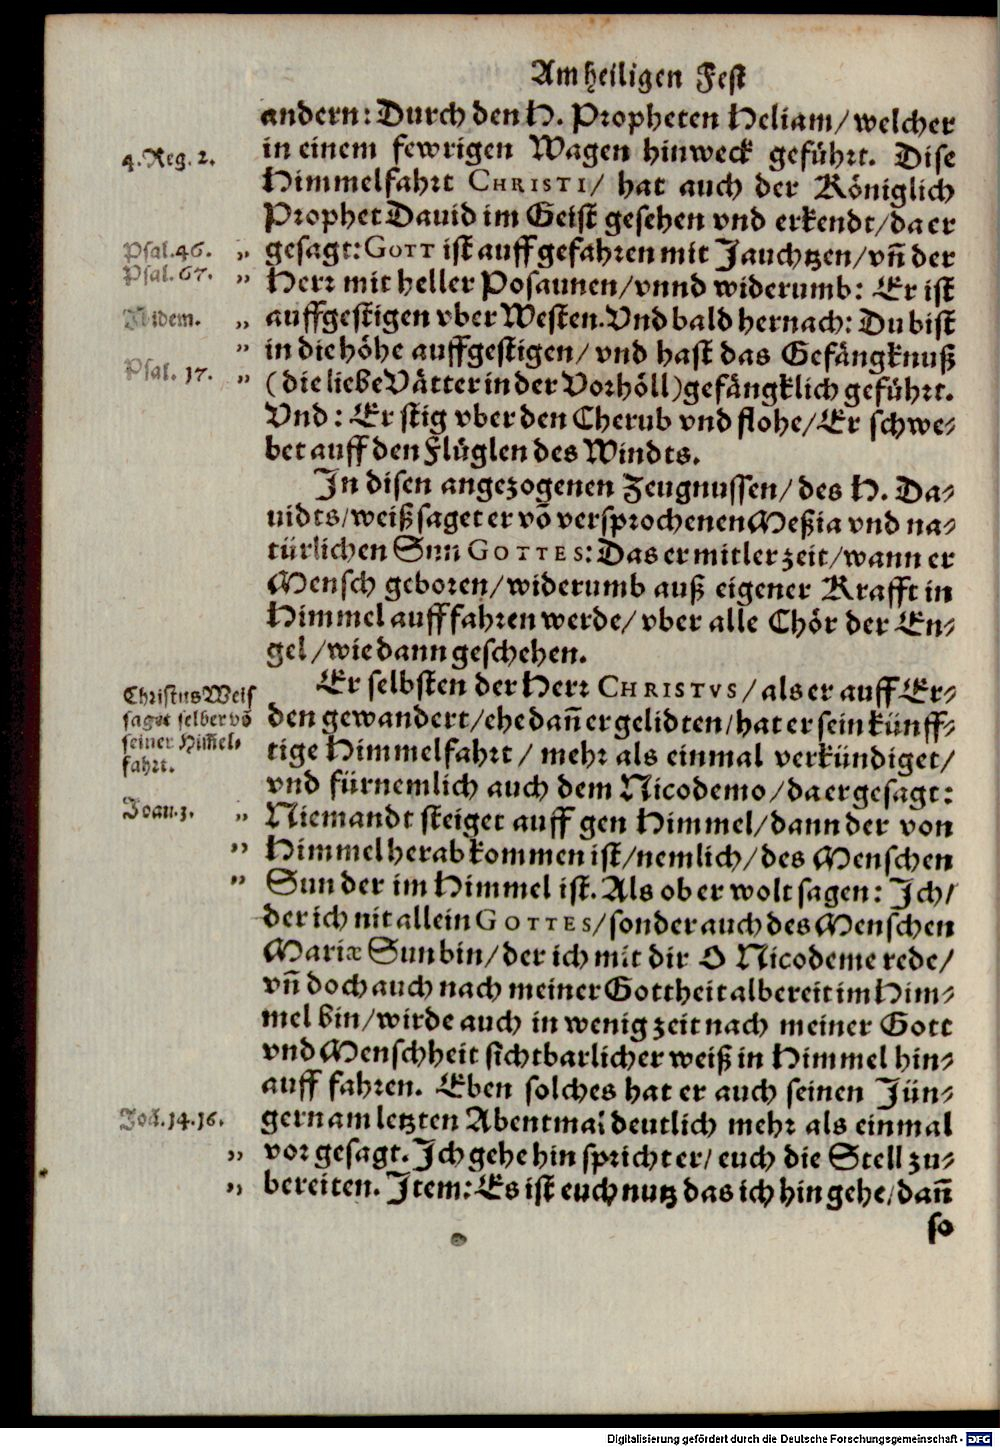 Am heiligen Fest
andern: Durch den H. Propheten Heliam/ welcher
4. Reg. 2.
in einem fewrigen Wagen hinweck geführt. Dise
Himmelfahrt CHRISTI/ hat auch der Königlich
Prophet Dauid im Geist gesehen vnd erkendt/ da er
Psal. 46. „ gesagt: GOTT ist auffgefahren mit Jauchtzen/ vñ der
Psal. 67. „ Herr mit heller Posaunen/ vnnd widerumb: Er ist
Ibidem. „ auffgestigen vber Westen. Vnd bald hernach: Du bist
„ in die höhe auffgestigen/ vnd hast das Gefängknuß
Psal. 17. „ (die liebe Vätter in der Vorhöll) gefängklich geführt.
Vnd: Er stig vber den Cherub vnd flohe/ Er schwe-
bet auff den Flüglen des Windts.
In disen angezogenen Zeugnussen/ des H. Da-
uidts/ weißsaget er võ versprochenen Meßia vnd na-
türlichen Sun GOTTES: Das er mitlerzeit/ wann er
Mensch geboren/ widerumb auß eigener Krafft in
Himmel auff fahren werde/ vber alle Chör der En-
gel/ wie dann geschehen.
Christus Weis
saget selber võ
seiner Him̃el-
fahrt.
Er selbsten der Herr CHRISTVS/ als er auff Er-
den gewandert/ ehe dañ er gelidten/ hat er sein künff-
tige Himmelfahrt/ mehr als einmal verkündiget/
vnd fürnemlich auch dem Nicodemo/ da er gesagt:
Joan. 3. „ Niemandt steiget auff gen Himmel/ dann der von
„ Himmel herab kommen ist/ nemlich/ des Menschen
„ Sun der im Himmel ist. Als ob er wolt sagen: Ich/
der ich nit allein GOTTES/ sonder auch des Menschen
Mariæ Sun bin/ der ich mit dir O Nicodeme rede/
vñ doch auch nach meiner Gottheit albereit im Him-
mel bin/ wirde auch in wenig zeit nach meiner Gott
vnd Menschheit sichtbarlicher weiß in Himmel hin-
auff fahren. Eben solches hat er auch seinen Jün-
Joã. 14. 16. gern am letzten Abentmal deutlich mehr als einmal
„ vor gesagt. Ich gehe hin spricht er/ euch die Stell zu-
„ bereiten. Item: Es ist euch nutz das ich hin gehe/ dañ
so
Digitalisierung gefördert durch die Deutsche Forschungsgemeinschaft - DFG